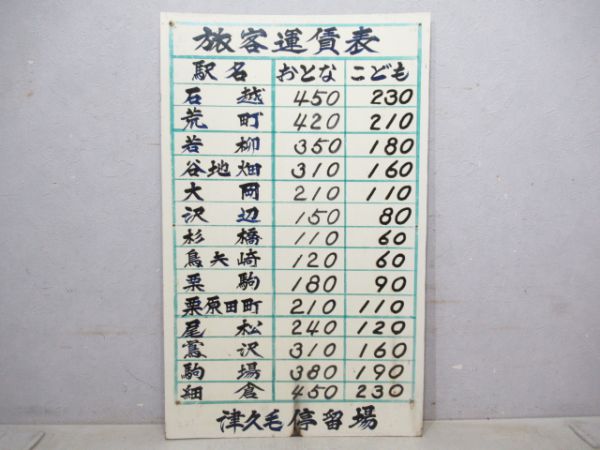 旅客運賃表
駅名 おとな こども
石越 450 230
荒町 420 210
若柳 350 180
谷地畑 310 160
大岡 210 110
沢辺 150 80
杉橋 110 60
鳥矢崎 120 60
栗駒 180 90
栗原田町 210 110
尾松 240 120
鶯沢 310 160
駒場 380 190
細倉 450 230
津久毛停留場